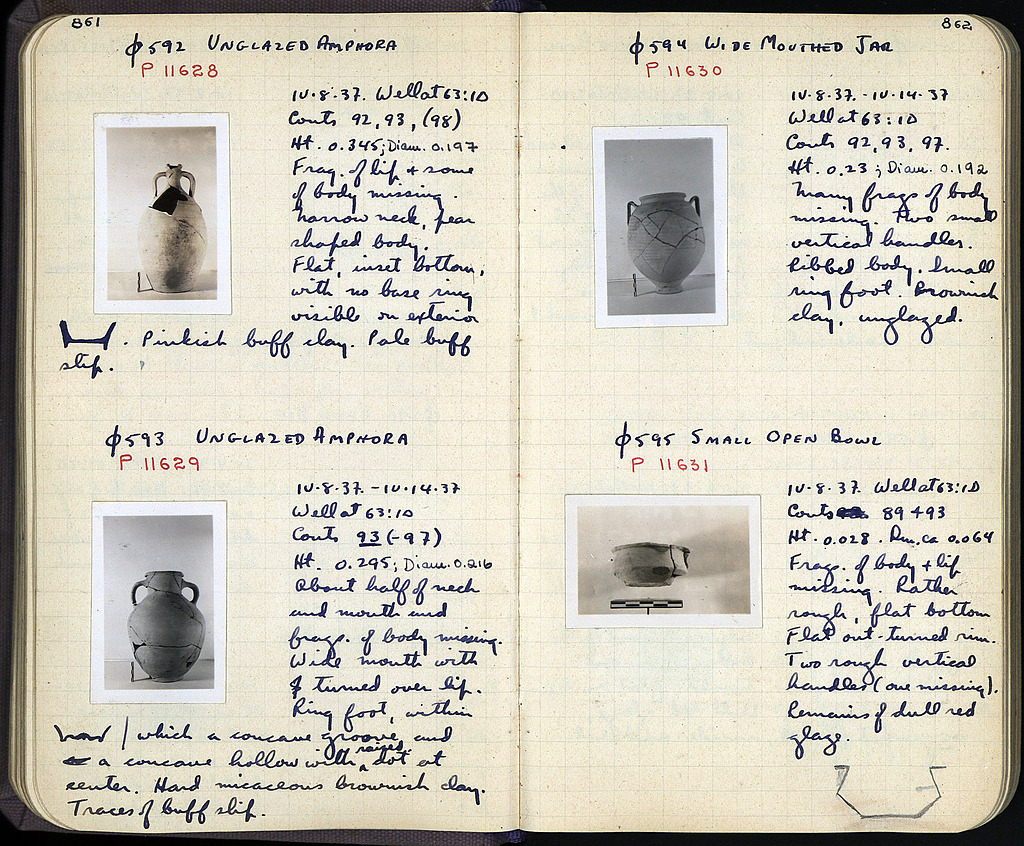 861
ϕ592 UNGLAZED AMPHORA
P 11628
IV·8·37. Well at 63:ΙΔ
Conts 92, 93, (98)
Ht. 0.345; Diam. 0.197
Frag. of lip + some
of body missing.
Narrow neck, pear
shaped body.
Flat, inset bottom,
with no base ring
visible on exterior
. Pinkish buff clay. Pale buff
slip.
ϕ593 UNGLAZED AMPHORA
P 11629
IV·8·37. - IV·14·37
Well at 63:ΙΔ
Conts 93 (-97)
Ht. 0.295; Diam. 0.216
About half of neck
and mouth and
frags. of body missing.
Wide mouth with
turned over lip.
Ring foot, within
which a concave groove, and
a concave hollow with raised dot at
center. Hard micaceous brownish clay.
Traces of buff slip.
862
ϕ594 WIDE MOUTHED JAR
P 11630
IV·8·37. - IV·14·37
Well at 63:ΙΔ
Conts 92, 93, 97.
Ht. 0.23; Diam. 0.192
Many frags of body
missing. Two small
vertical handles.
Ribbed body. Small
ring foot. Brownish
clay, unglazed.
ϕ595 SMALL OPEN BOWL
P 11631
IV·8·37. Well at 63:ΙΔ
Conts 89 + 93
Ht. 0.028. Dm. ca 0.064
Frags. of body + lip
missing. Rather
rough, flat bottom
Flat out-turned rim.
Two rough vertical
handles (one missing).
Remains of dull red
glaze.